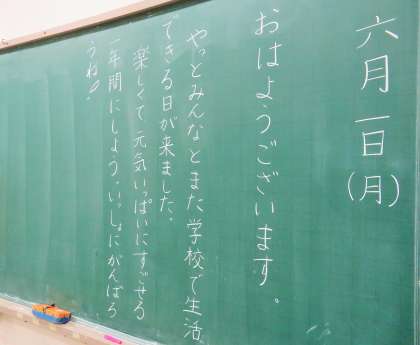 六月一日(月)
おはようございます。
やっとみんなとまた学校で生活
できる日が来ました。
楽しくて元気いっぱいにすごせる
一年間にしよう。いっしょにがんばろ
うね!